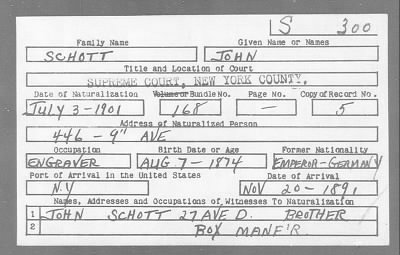 S 300
Family Name Given Name or Names
SCHOTT JOHN
Title and Location of Court
SUPREME COURT, NEW YORK COUNTY.
Date of Naturalization Volume or Bundle No. Page No. Copy of Record No.
JULY 3-1901 168 — 5
Address of Naturalized Person
446 - 9" AVE
Occupation Birth Date or Age Former Nationality
ENGRAVER AUG 7-1874 EMPEROR-GERMANY
Port of Arrival in the United States Date of Arrival
N.Y NOV 20-1891
Names, Addresses and Occupations of Witnesses To Naturalization
1 JOHN SCHOTT 27 AVE D. BROTHER
2 BOX MANF'R